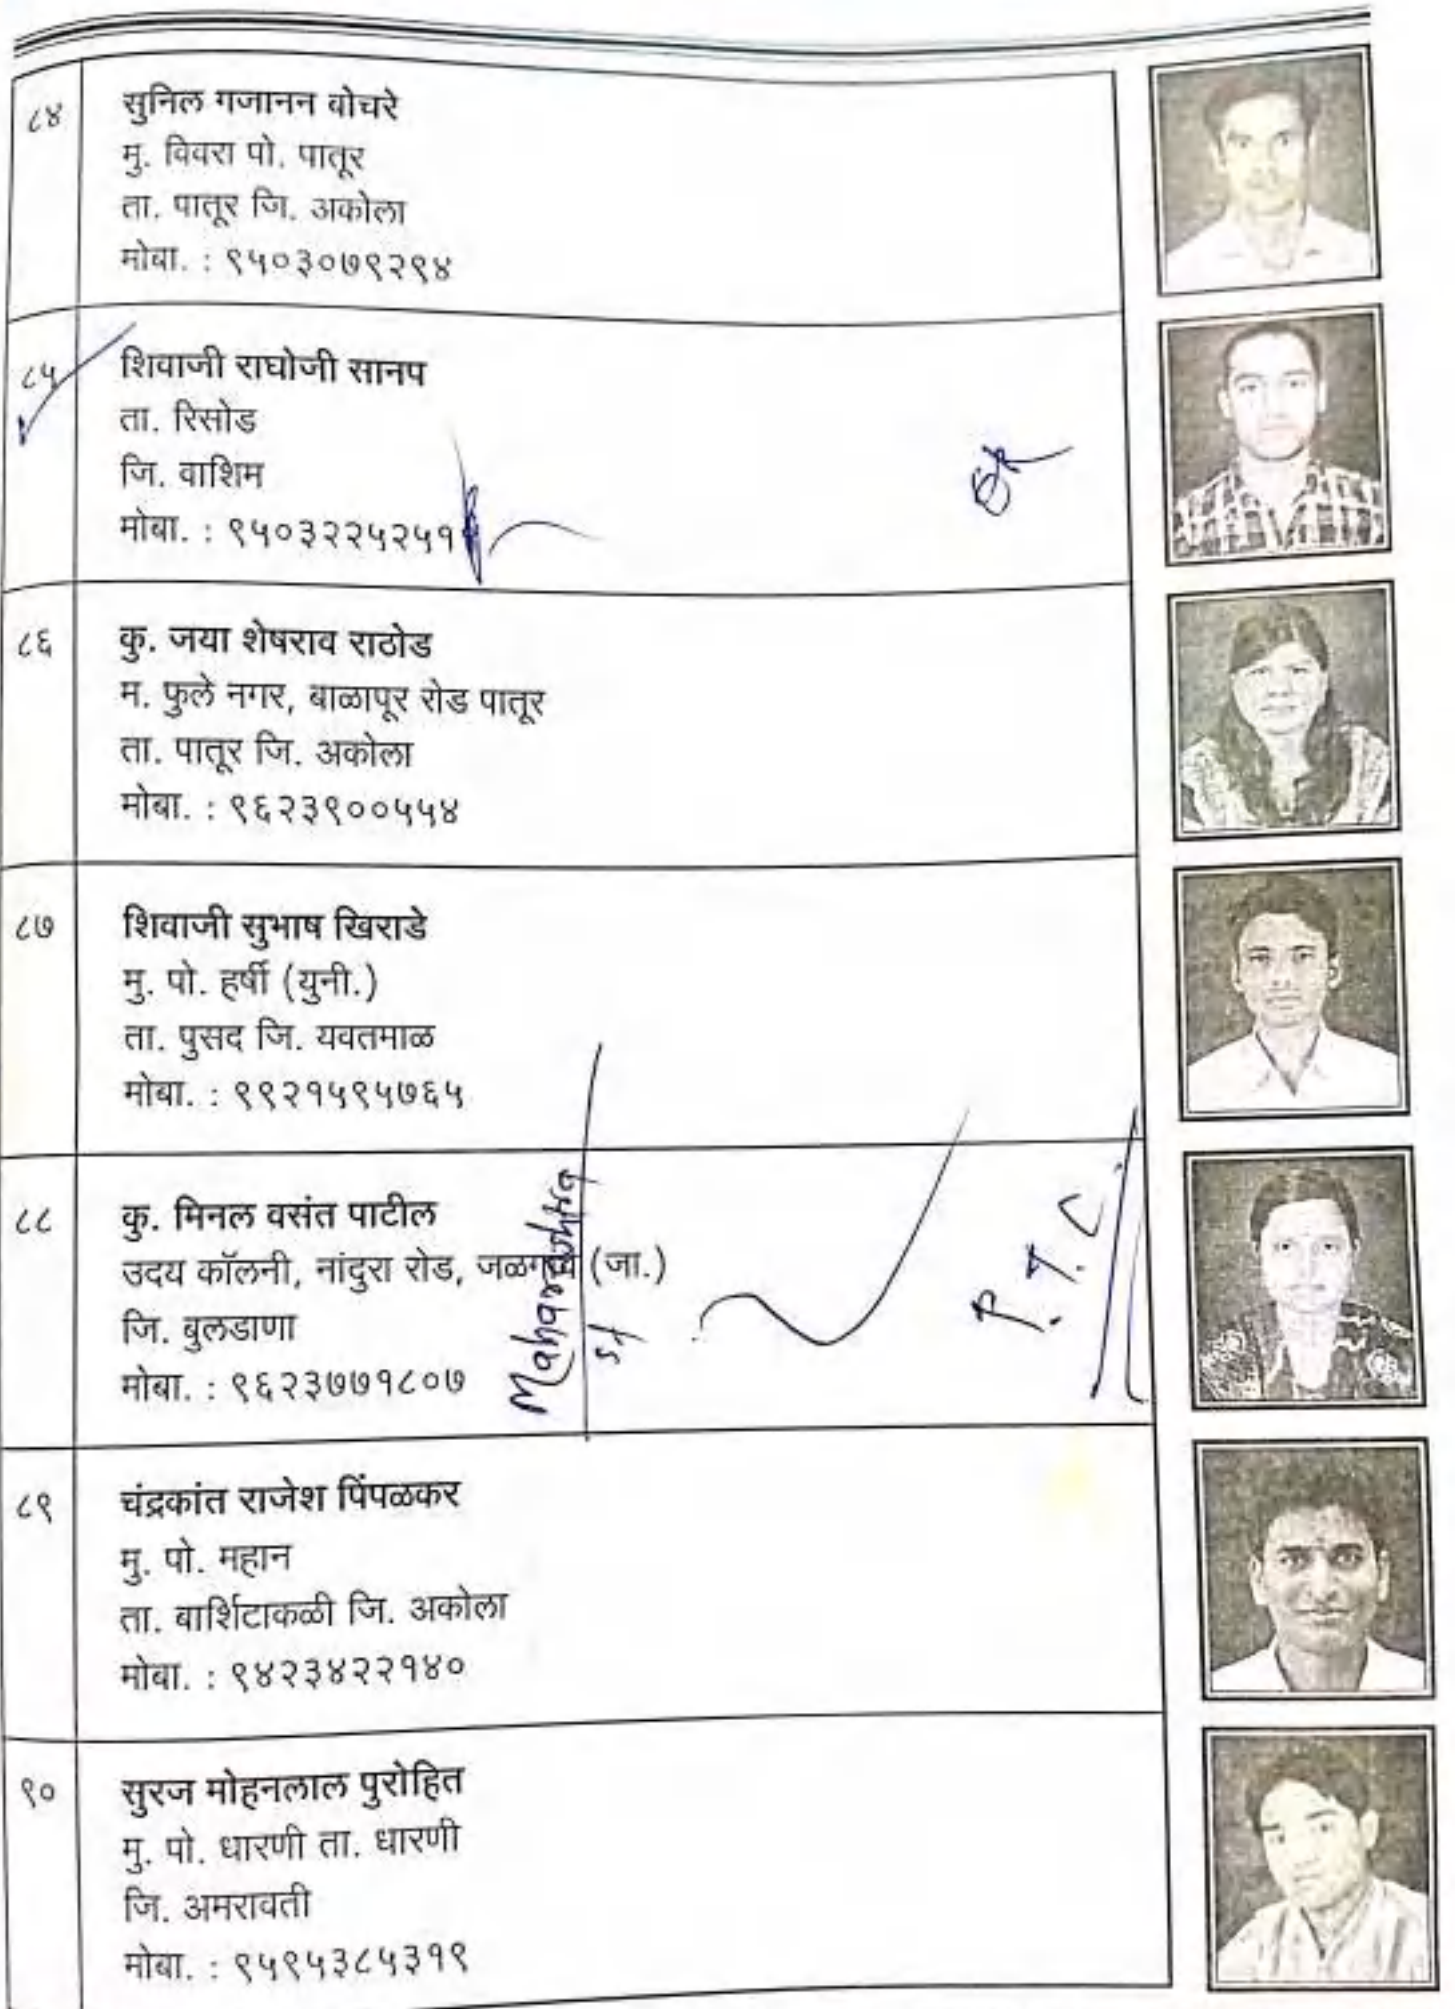 ८४
सुनिल गजानन बोचरे
मु. विवरा पो. पातूर
ता. पातूर जि. अकोला
मोबा. : ९५०३०७९२९४
८५
शिवाजी राघोजी सानप
ता. रिसोड
जि. वाशिम
मोबा. : ९५०३२२५२५१
८६
कु. जया शेषराव राठोड
म. फुले नगर, बाळापूर रोड पातूर
ता. पातूर जि. अकोला
मोबा. : ९६२३९००५५४
८७
शिवाजी सुभाष खिराडे
मु. पो. हर्षी (युनी.)
ता. पुसद जि. यवतमाळ
मोबा. : ९९२१५९५७६५
८८
कु. मिनल वसंत पाटील
उदय कॉलनी, नांदुरा रोड, (जा.)
जि. बुलडाणा
मोबा. : ९६२३७७१८०७
Maharashtra
८९
चंद्रकांत राजेश पिंपळकर
मु. पो. महान
ता. बार्शिटाकळी जि. अकोला
मोबा. : ९४२३४२२१४०
९०
सुरज मोहनलाल पुरोहित
मु. पो. धारणी ता. धारणी
जि. अमरावती
मोबा. : ९५९५३८५३१९